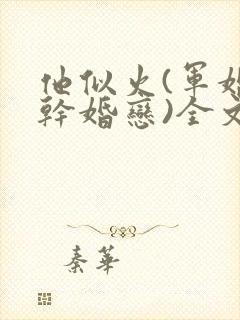 他似火(軍婚
幹婚戀)全文
秦華